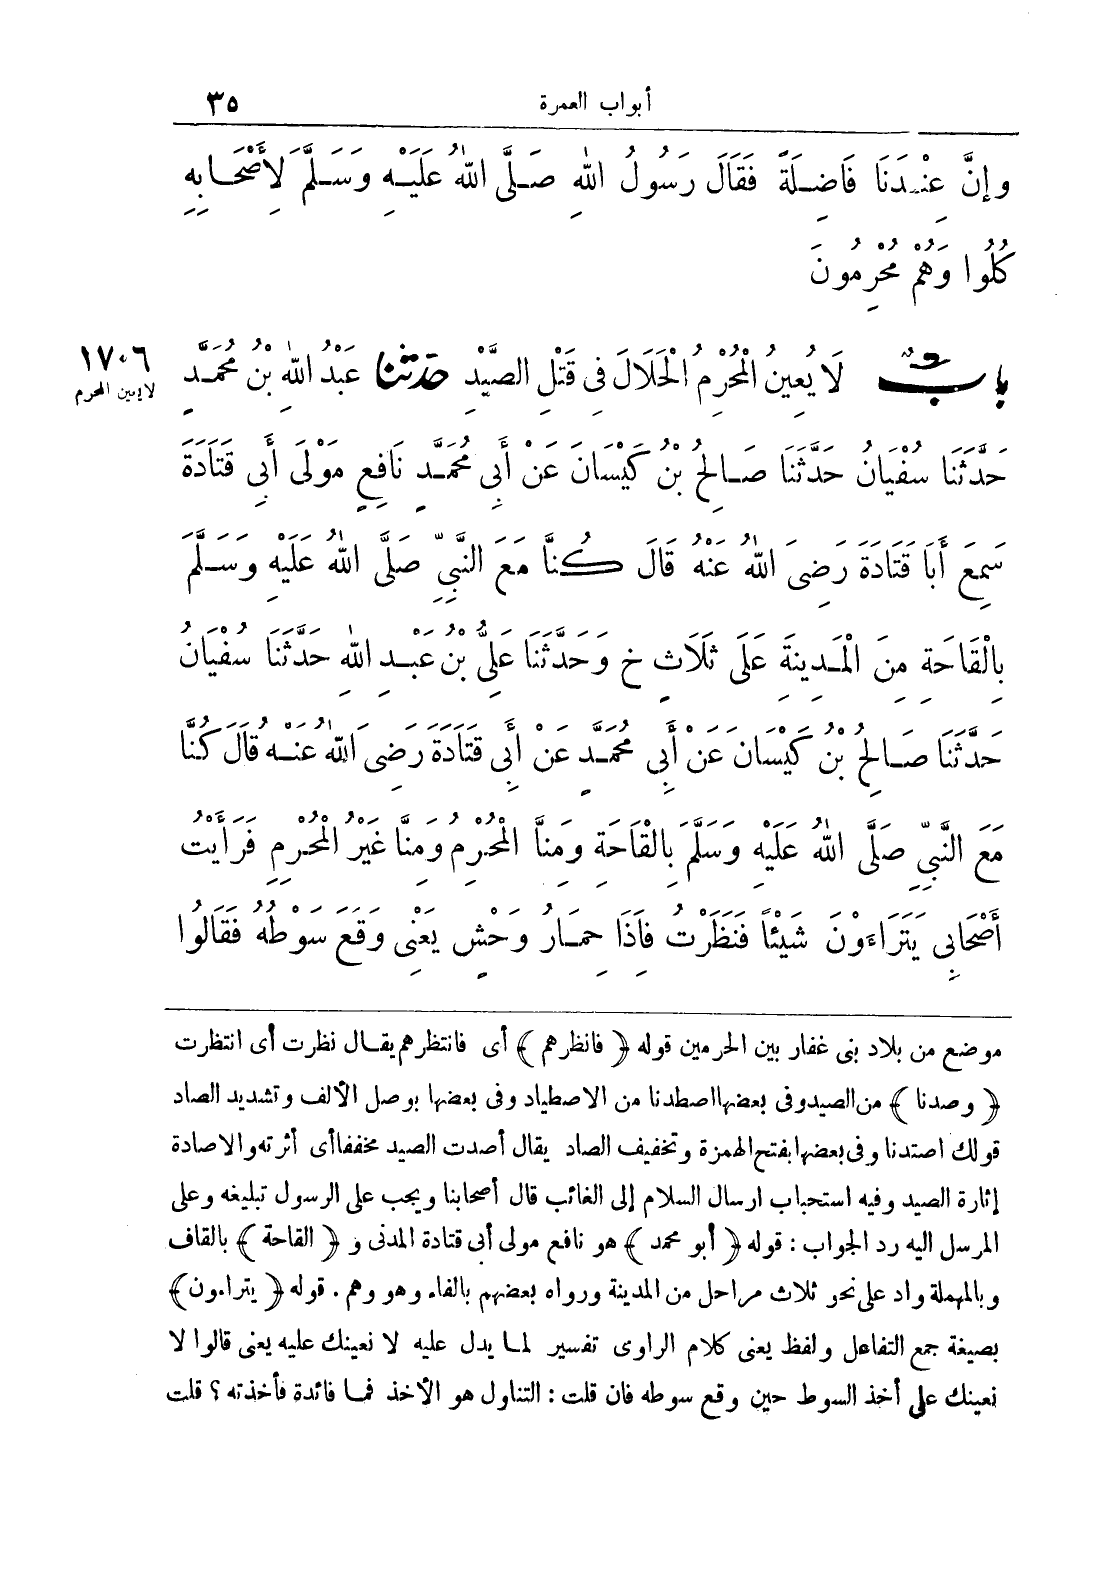 أبواب العمرة ٣٥
وإنَّ عِنْدَنَا فَاضِلَةً فَقَالَ رَسُولُ اللهِ صَلَّى اللهُ عَلَيْهِ وَسَلَّمَ لِأَصْحَابِهِ
كُلُوا وَهُمْ مُحْرِمُونَ
بابٌ لَا يُعِينُ الْمُحْرِمُ الْحَلَالَ فِى قَتْلِ الصَّيْدِ حدثنا عَبْدُ اللهِ بْنُ مُحَمَّدٍ
١٧٠٦
لا يعين المحرم
حَدَّثَنَا سُفْيَانُ حَدَّثَنَا صَالِحُ بْنُ كَيْسَانَ عَنْ أَبِى مُحَمَّدٍ نَافِعٍ مَوْلَى أَبِى قَتَادَةَ
سَمِعَ أَبَا قَتَادَةَ رَضِىَ اللهُ عَنْهُ قَالَ كُنَّا مَعَ النَّبِىِّ صَلَّى اللهُ عَلَيْهِ وَسَلَّمَ
بِالْقَاحَةِ مِنَ الْمَدِينَةِ عَلَى ثَلَاثٍ خ وَحَدَّثَنَا عَلِىُّ بْنُ عَبْدِ اللهِ حَدَّثَنَا سُفْيَانُ
حَدَّثَنَا صَالِحُ بْنُ كَيْسَانَ عَنْ أَبِى مُحَمَّدٍ عَنْ أَبِى قَتَادَةَ رَضِىَ اللهُ عَنْهُ قَالَ كُنَّا
مَعَ النَّبِىِّ صَلَّى اللهُ عَلَيْهِ وَسَلَّمَ بِالْقَاحَةِ وَمِنَّا الْمُحْرِمُ وَمِنَّا غَيْرُ الْمُحْرِمِ فَرَأَيْتُ
أَصْحَابِى يَتَرَاءَوْنَ شَيْئًا فَنَظَرْتُ فَاِذَا حِمَارُ وَحْشٍ يَعْنِى وَقَعَ سَوْطُهُ فَقَالُوا
موضع من بلاد بنى غفار بين الحرمين قوله ﴿فانظرهم﴾ أى فانتظرهم يقال نظرت أى انتظرت
﴿وصدنا﴾ من الصيد وفى بعضها اصطدنا من الاصطياد وفى بعضها بوصل الألف وتشديد الصاد
قولك اصتدنا وفى بعضها بفتح الهمزة وتخفيف الصاد يقال أصدت الصيد مخففا أى أثرته والاصادة
إثارة الصيد وفيه استحباب ارسال السلام إلى الغائب قال أصحابنا ويجب على الرسول تبليغه وعلى
المرسل اليه رد الجواب : قوله ﴿أبو محمد﴾ هو نافع مولى أبى قتادة المدنى و ﴿القاحة﴾ بالقاف
وبالمهملة واد على نحو ثلاث مراحل من المدينة ورواه بعضهم بالفاء وهو وهم . قوله ﴿يتراءون﴾
بصيغة جمع التفاعل ولفظ يعنى كلام الراوى تفسير لما يدل عليه لا نعينك عليه يعنى قالوا لا
نعينك على أخذ السوط حين وقع سوطه فان قلت : التناول هو الأخذ فما فائدة فأخذته ؟ قلت